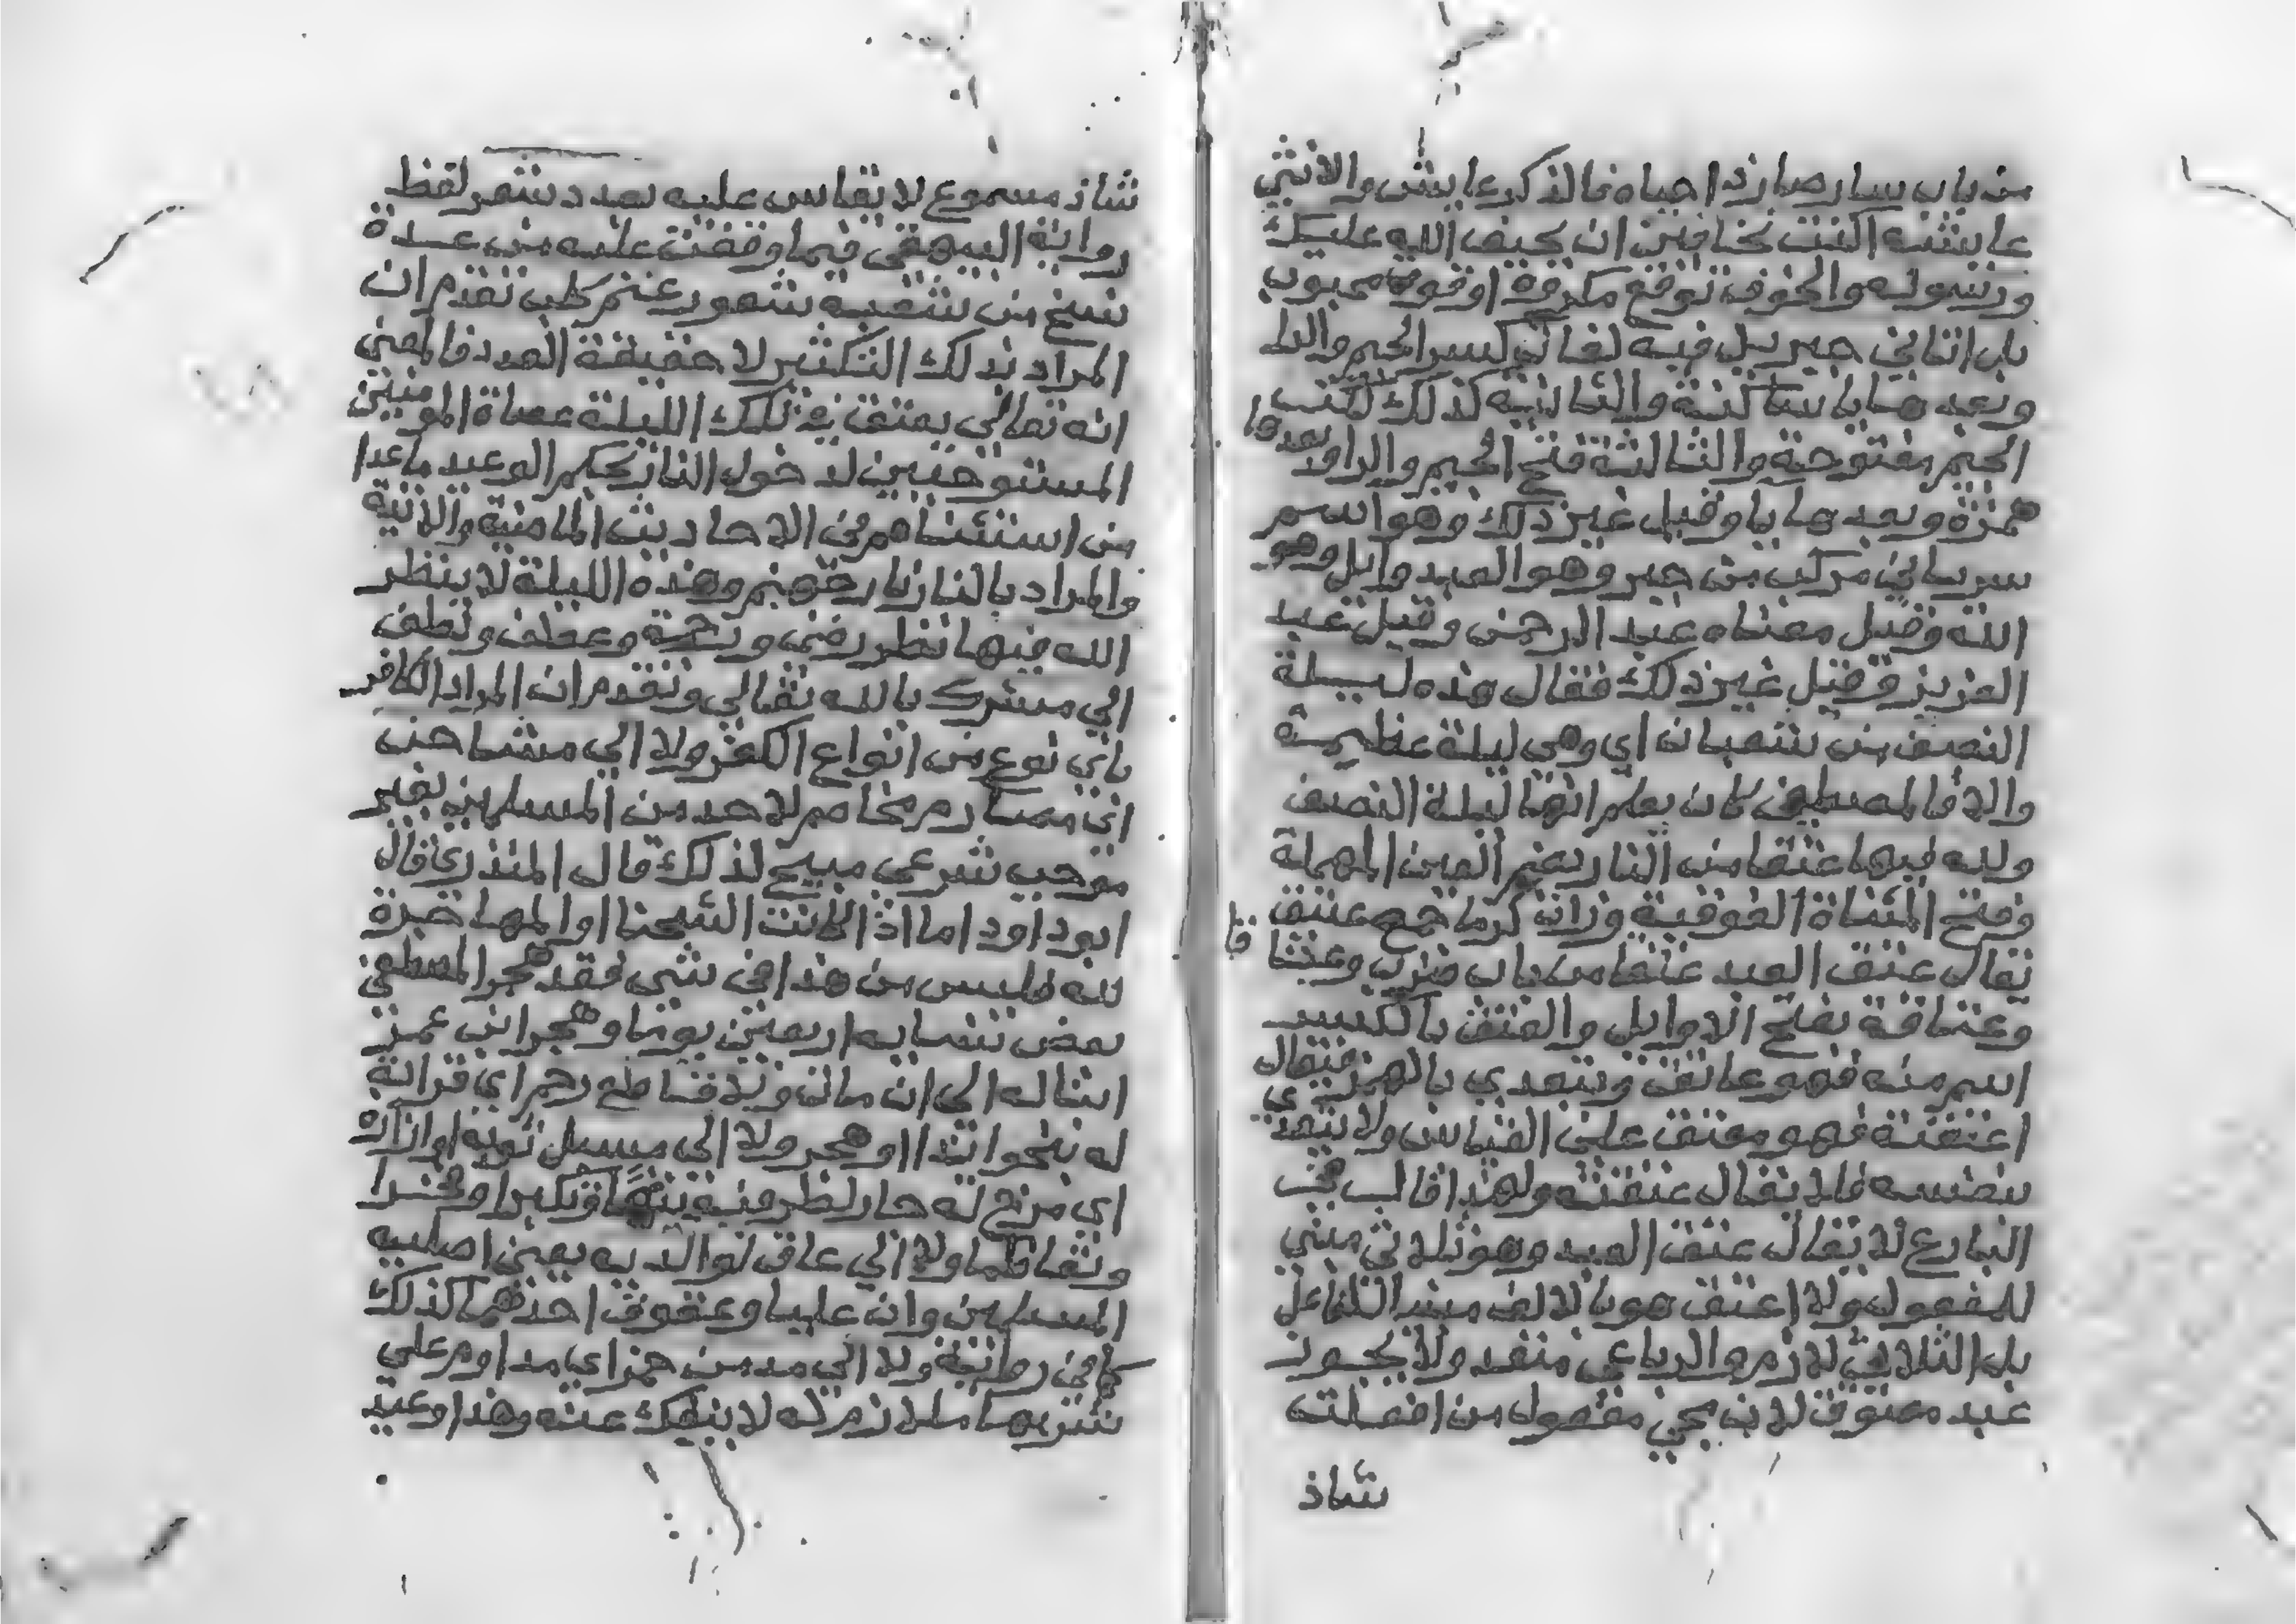 من باب سار صار ذا حياه فالذكر عايش والانثي
عايشه اكنت تخافين ان يحيف الله عليك
ورسوله والخوف توقع مكروه او فوت محبوب
بل اتاني جبريل فيه لغات كسر الجيم والرا
وبعدها يا ساكنة والثانية كذلك لكن
الجيم مفتوحة والثالثة فتح الجيم والرا وبعدها
همزة وبعدها يا وقيل غير ذلك وهو اسم
سرياني مركب من جبر وهو العبد وايل وهو
الله وقيل معناه عبد الرحمن وقيل عبد
العزيز وقيل غير ذلك فقال هذه ليلة
النصف من شعبان اي وهي ليلة عظيمة
والا فالمصطفى كان يعلم انها ليلة النصف
ولله فيها عتقا من النار بضم العين المهملة
وفتح المثناة الفوقية وزان كرما جمع عتيق
يقال عتق العبد عتقا من باب ضرب وعتاقا
وعتاقة بفتح الاوايل والعتق بالكسر
اسم منه فهو عاتق ويتعدي بالهمزة فيقال
اعتقته فهو معتق على القياس ولا يتعدي
بنفسه فلا يقال عتقته ولهذا قال في
البارع لا يقال عتق العبد وهو ثلاثي مبني
للمفعول ولا اعتق هو بالالف مبنيا للفاعل
بل الثلاثي لازم والرباعي متعد ولا يجوز
عبد معتوق لان مجي مفعول من افعلت
شاذ
شاذ مسموع لا يقاس عليه بعدد شعر لفظ
رواية البيهقي فيما وقفت عليه من عدة
نسخ من شعبه شعور غنم كلب تقدم ان
المراد بذلك التكثير لا حقيقة العدد فالمعنى
انه تعالى يعتق في تلك الليلة عصاة المومنين
المستوجبين لدخول النار بحكم الوعيد ما عدا
من استثناهم في الاحاديث الماضية والاتية
والمراد بالنار نار جهنم وهذه الليلة لا ينظر
الله فيها نظر رضى ورحمة وعطف ولطف
الي مشرك بالله تعالي وتقدم ان المراد الكافر
باي نوع من انواع الكفر ولا الى مشاحن
اي مصارم مخاصم لاحد من المسلمين بغير
موجب شرعي مبيح لذلك قال المنذري قال
ابو داود اما اذا كانت الشحنا او المهاجرة
لله فليس من هذا في شي فقد هجر المصطفى
بعض نسايه اربعين يوما وهجر ابن عمر
ابنا له الى ان مات ولا قاطع رحم اي قرابة
له بنحو ايذا او هجر ولا الى مسبل ثوبه او ازاره
اي مرخ له جار لطرفيه تيها وتكبرا وفخرا
وتعاظما ولا الي عاق لوالديه يعني اصليه
المسلمين وان عليا وعقوق احدهما كذلك
كما في رواية ولا الى مدمن خمر اي مداوم علي
شربها ملازم له لا ينفك عنه وهذا وعيد